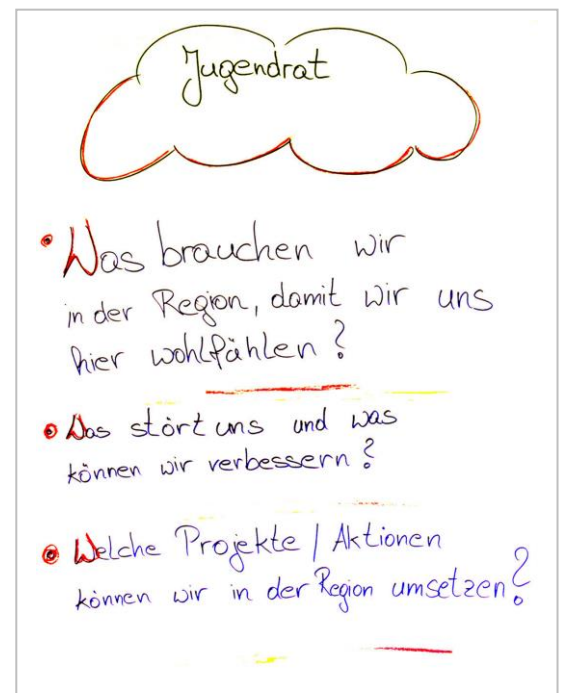 Jugendrat
• Was brauchen wir
in der Region, damit wir uns
hier wohlfühlen?
• Was stört uns und was
können wir verbessern?
• Welche Projekte / Aktionen
können wir in der Region umsetzen?